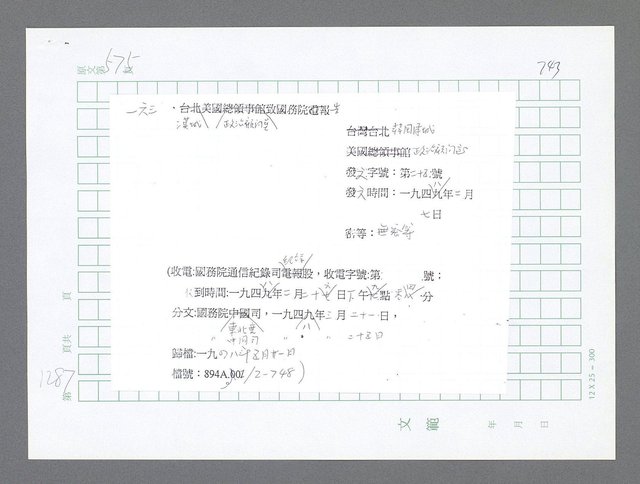 原文第575頁
743
一六三
．台北美國總領事館致國務院電報
漢城 政治顧問室
台灣台北 韓國漢城
美國總領事館 政治顧問室
發文字號：第二十五號
發文時間：一九四九年二月
八
七日
密等：無密等
紀錄
(收電:國務院通信紀錄司電報股，收電字號:第 號；
收到時間:一九四九年二月二十七日下午 點 分
分文:國務院中國司，一九四九年三月二十一日，
東北亞
八
二十五日
歸檔:一九四八年五月廿一日
檔號：894A.00/2-748)
頁
頁共
1287
第
12 X 25 = 300
文 範 年 月 日